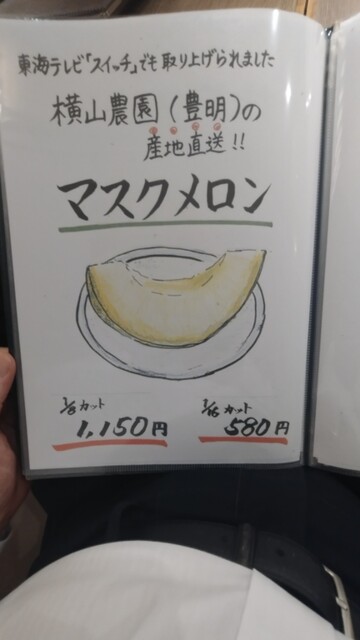 東海テレビ「スイッチ」でも取り上げられました
横山農園(豊明)の
産地直送!!
マスクメロン
1/8カット
1,150円
1/16カット
580円